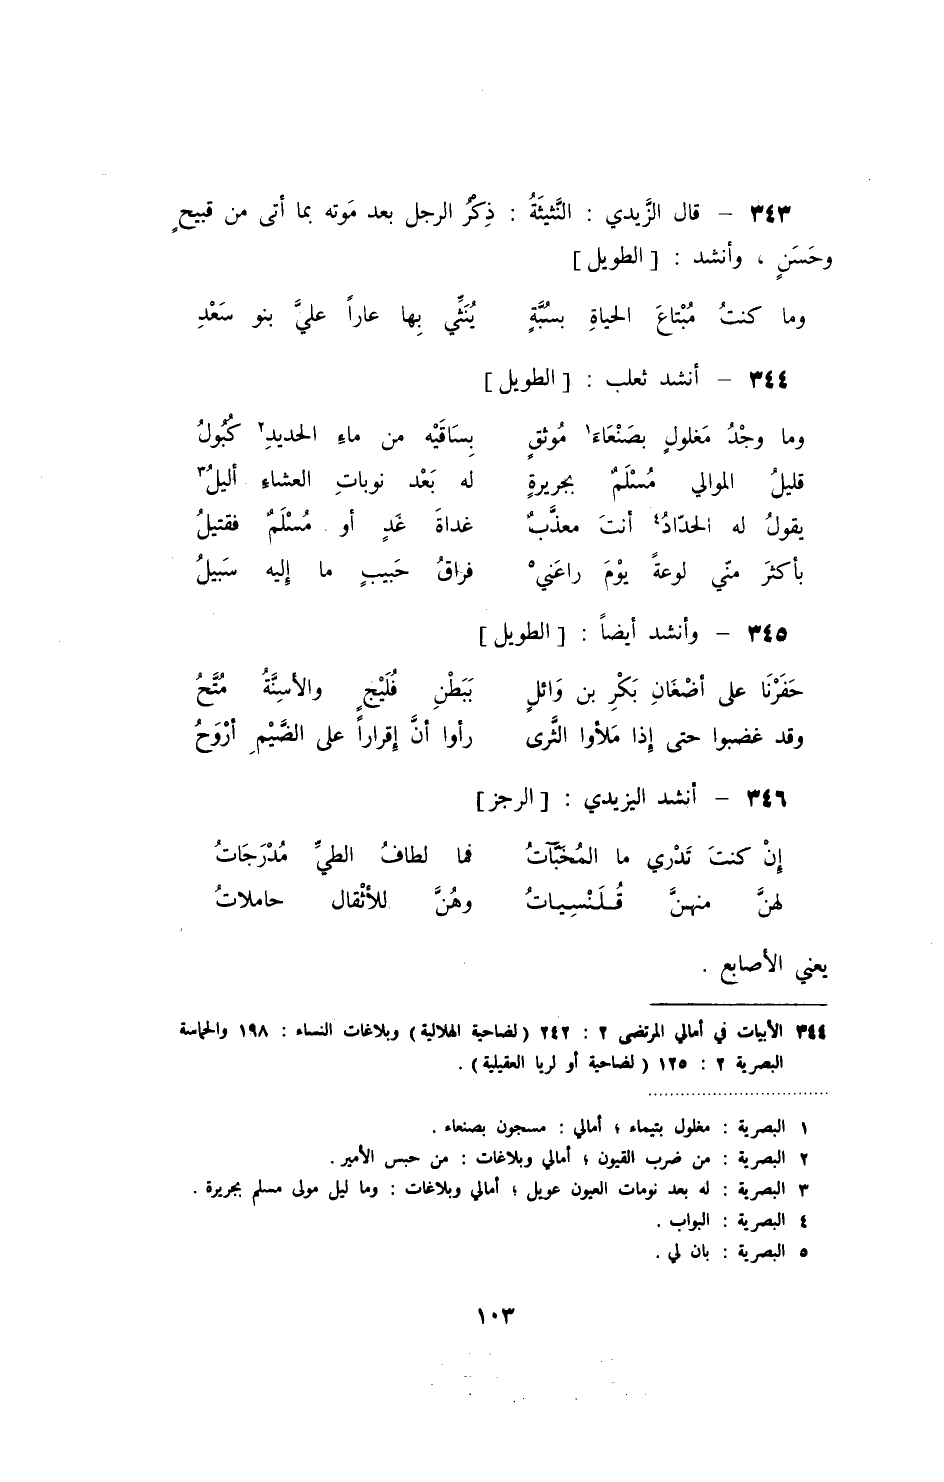 ٣٤٣ – قال الزَّيدي : النَّثيثَةُ : ذِكرُ الرجل بعد مَوته بما أتى من قبيحٍ
وحَسَنٍ ، وأنشد : [ الطويل ]
وما كنتُ مُبْتاعَ الحياةِ بسُبَّةٍ يُنَثِّي بِها عاراً عليَّ بنو سَعْدِ
٣٤٤ – أنشد ثعلب : [ الطويل ]
وما وجْدُ مَغلولٍ بصَنْعَاءَ١ مُوثقٍ بِسَاقَيْه من ماءِ الحديدِ٢ كُبُولُ
قليلُ الموالي مُسْلَمٌ بجريرةٍ له بَعْد نوباتِ العشاءِ أليلُ٣
يقولُ له الحدّادُ٤ أنتَ معذَّبٌ غداةَ غَدٍ أو مُسْلَمٌ فقتيلُ
بأكثرَ منّي لوعةً يوْمَ راعَني٥ فراقُ حَبيبٍ ما إليه سَبيلُ
٣٤٥ – وأنشد أيضاً : [ الطويل ]
حَفَرْنَا على أضْغَانِ بَكْرِ بن وَائلٍ بِبَطْنِ فُلَيْجٍ والأسِنَّةُ مُتَّحُ
وقد غضبوا حتى إذا مَلأوا الثَّرى رأوا أنَّ إقراراً على الضَّيْمِ أرْوَحُ
٣٤٦ – أنشد اليزيدي : [ الرجز ]
إنْ كنتَ تَدْري ما المُخَبَّآتُ فما لطافُ الطيِّ مُدْرَجَاتُ
لهنَّ منهنَّ قُلَنْسِيـاتُ وهُنَّ للأثْقال حاملاتُ
يعني الأصابع .
٣٤٤ الأبيات في أمالي المرتضى ٢ : ٢٤٢ ( لضاحية الهلالية ) وبلاغات النساء : ١٩٨ والحماسة
البصرية ٢ : ١٢٥ ( لضاحية أو لريا العقيلية ) .
١ البصرية : مغلول بتيماء ؛ أمالي : مسجون بصنعاء .
٢ البصرية : من ضرب القيون ؛ أمالي وبلاغات : من حبس الأمير .
٣ البصرية : له بعد نومات العيون عويل ؛ أمالي وبلاغات : وما ليل مولى مسلم بجريرة .
٤ البصرية : البواب .
٥ البصرية : بان لي .
١٠٣